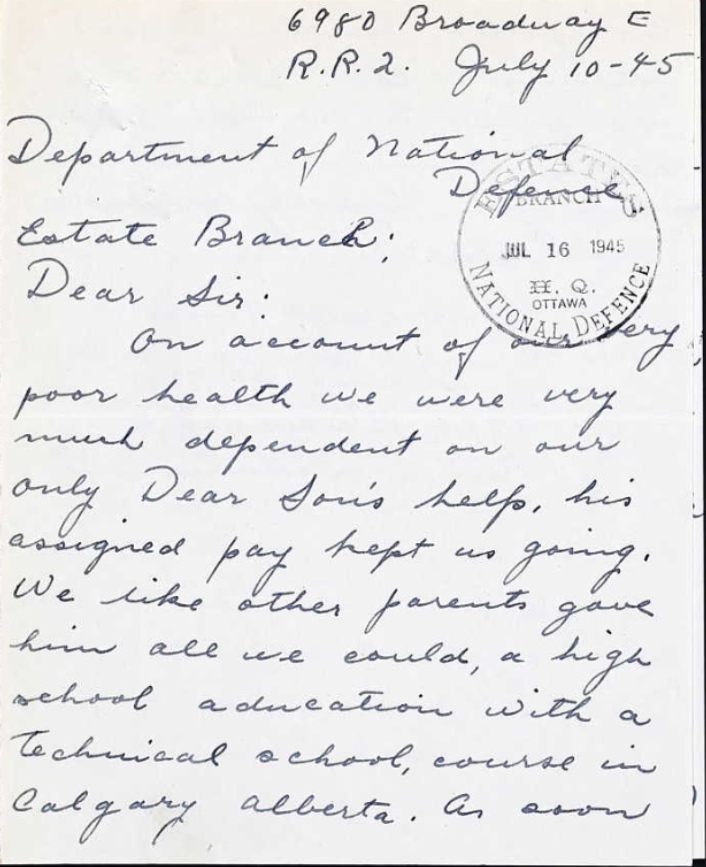 6980 Broadway E
R.R.2. July 10-45
Department of National
Defence
Estate Branch;
ESTATES
BRANCH
JUL 16 1945
H. Q.
OTTAWA
NATIONAL DEFENCE
Dear Sir:
On account of our very
poor health we were very
much dependent on our
only Dear Son's help, his
assigned pay kept us going.
We like other parents gave
him all we could, a high
school aducation with a
technical school, course in
Calgary alberta. As soon